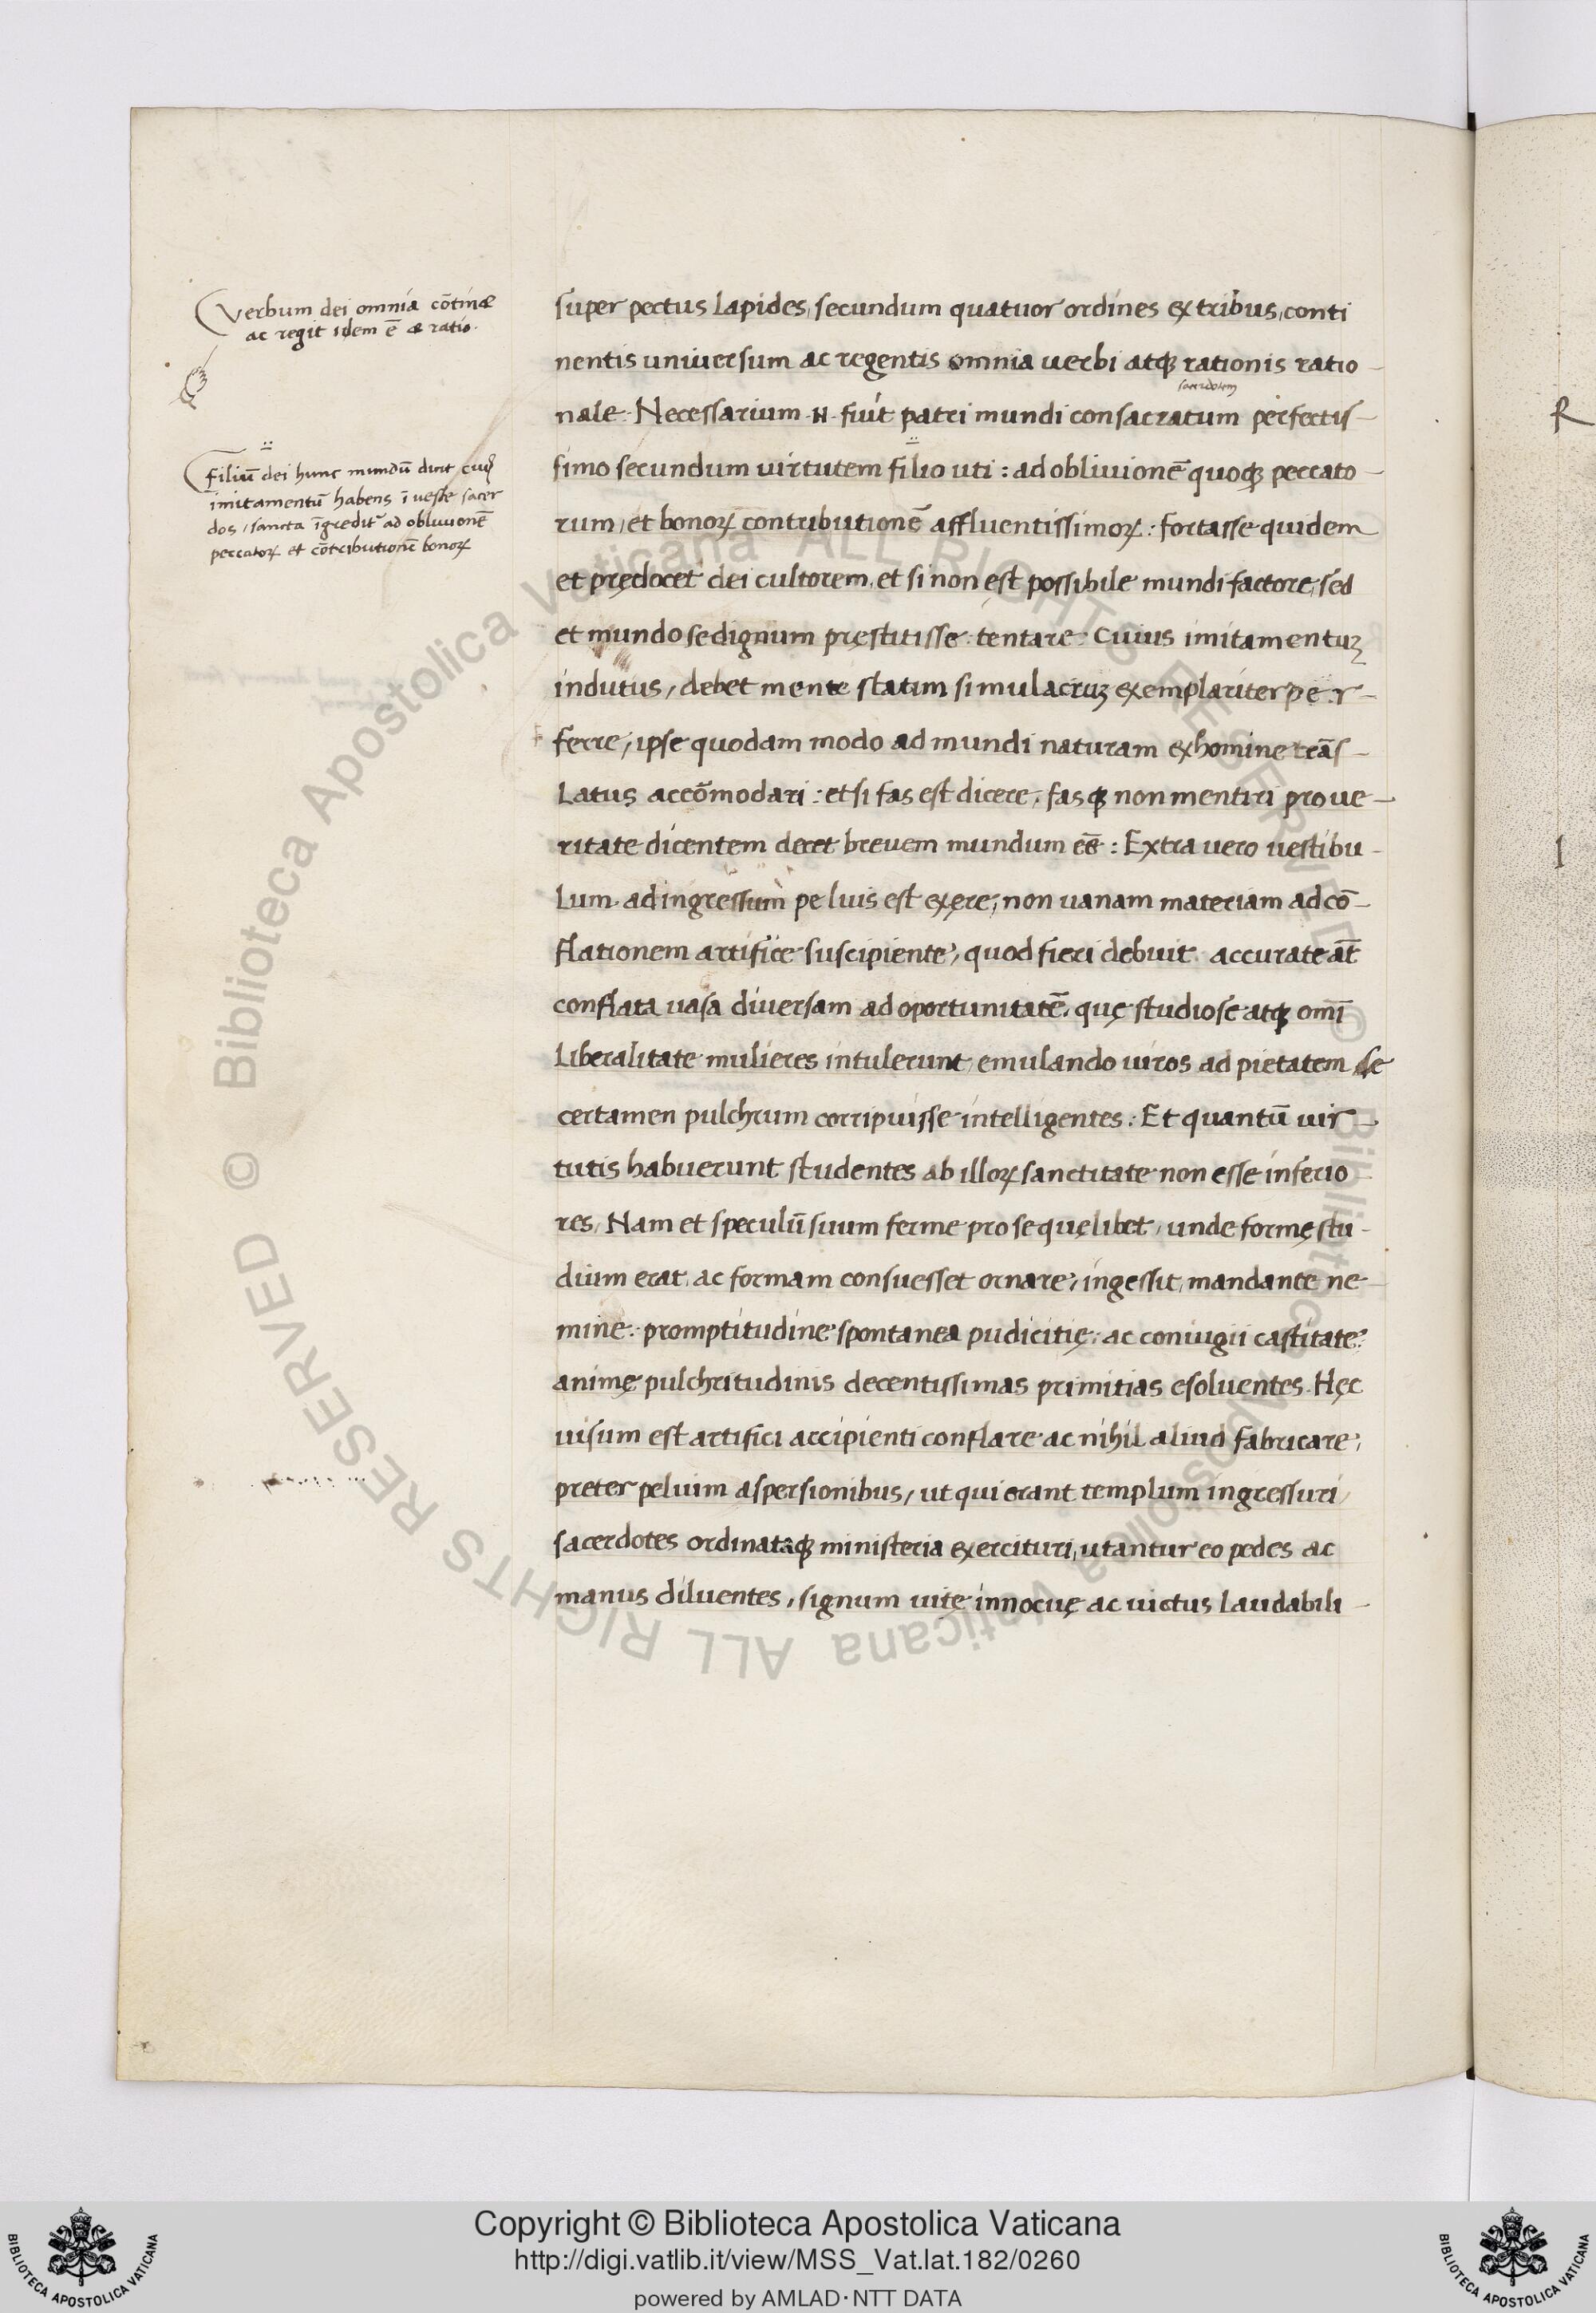 Verbum dei omnia cōtinæ
ac regit idem ē æ ratio.
Filiū dei hunc mundū dicit cuiꝰ
imitamentū habens ī ueste sacer
dos, sancta īgredit ad obliuionē
peccatoꝝ et cōtributionē bonoꝝ
super pectus lapides, secundum quatuor ordines ex tribus, conti
nentis uniuersum ac regentis omnia uerbi atqꝫ rationis ratio-
sacerdotem
nale. Necessarium .N. fuit patri mundi consacratum perfectis-
simo secundum uirtutem filio uti: ad obliuionē quoqꝫ peccato-
rum, et bonoꝝ contributionē affluentissimoꝝ: fortasse quidem
et prędocet dei cultorem, et si non est possibile mundi factore, sed
et mundo se dignum pręstitisse tentare. Cuius imitamentuꝫ
indutus, debet mente statim simulacruꝫ exemplariter per-
ferre, ipse quodam modo ad mundi naturam ex homine trās-
latus accōmodari: et si fas est dicere, fasqꝫ non mentiri pro ue-
ritate dicentem decet breuem mundum eē: Extra uero uestibu-
lum ad ingressum peluis est exęre, non uanam materiam ad cō-
flationem artifice suscipiente, quod fieri debuit. accurate āt
conflata uasa diuersam ad oportunitatē, quę studiose atqꝫ omī
liberalitate mulieres intulerunt, emulando uiros ad pietatem se
certamen pulchrum corripuisse intelligentes: Et quantū uir-
tutis habuerunt studentes ab illoꝝ sanctitate non esse inferio
res, Nam et speculū suum ferme pro se quęlibet, unde formę stu-
dium erat, ac formam consuesset ornare, ingessit, mandante ne-
mine: promptitudine spontanea pudicitię, ac coniugii castitate:
animę pulchritudinis decentissimas primitias esoluentes. Hęc
uisum est artifici accipienti conflare ac nihil aliud fabricare,
preter peluim aspersionibus, ut qui erant templum ingressuri,
sacerdotes ordinataqꝫ ministeria exercituri, utantur eo pedes ac
manus diluentes, signum uitę innocuę ac uictus laudabili-
R
I
© Biblioteca Apostolica Vaticana ALL RIGHTS RESERVED © Biblioteca Apostolica Vaticana ALL RIGHTS RESERVED
Copyright © Biblioteca Apostolica Vaticana
http://digi.vatlib.it/view/MSS_Vat.lat.182/0260
powered by AMLAD·NTT DATA
BIBLIOTECA APOSTOLICA VATICANA
BIBLIOTECA APOSTOLICA VATICANA